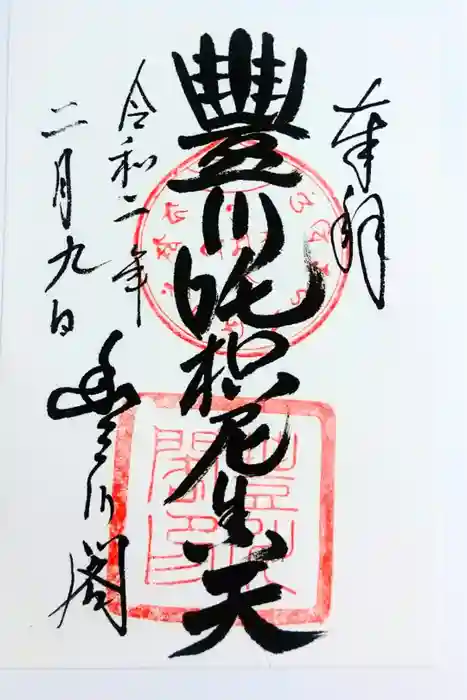 奉拝
豐川吒枳尼眞天
令和二年
二月九日
豊川閣